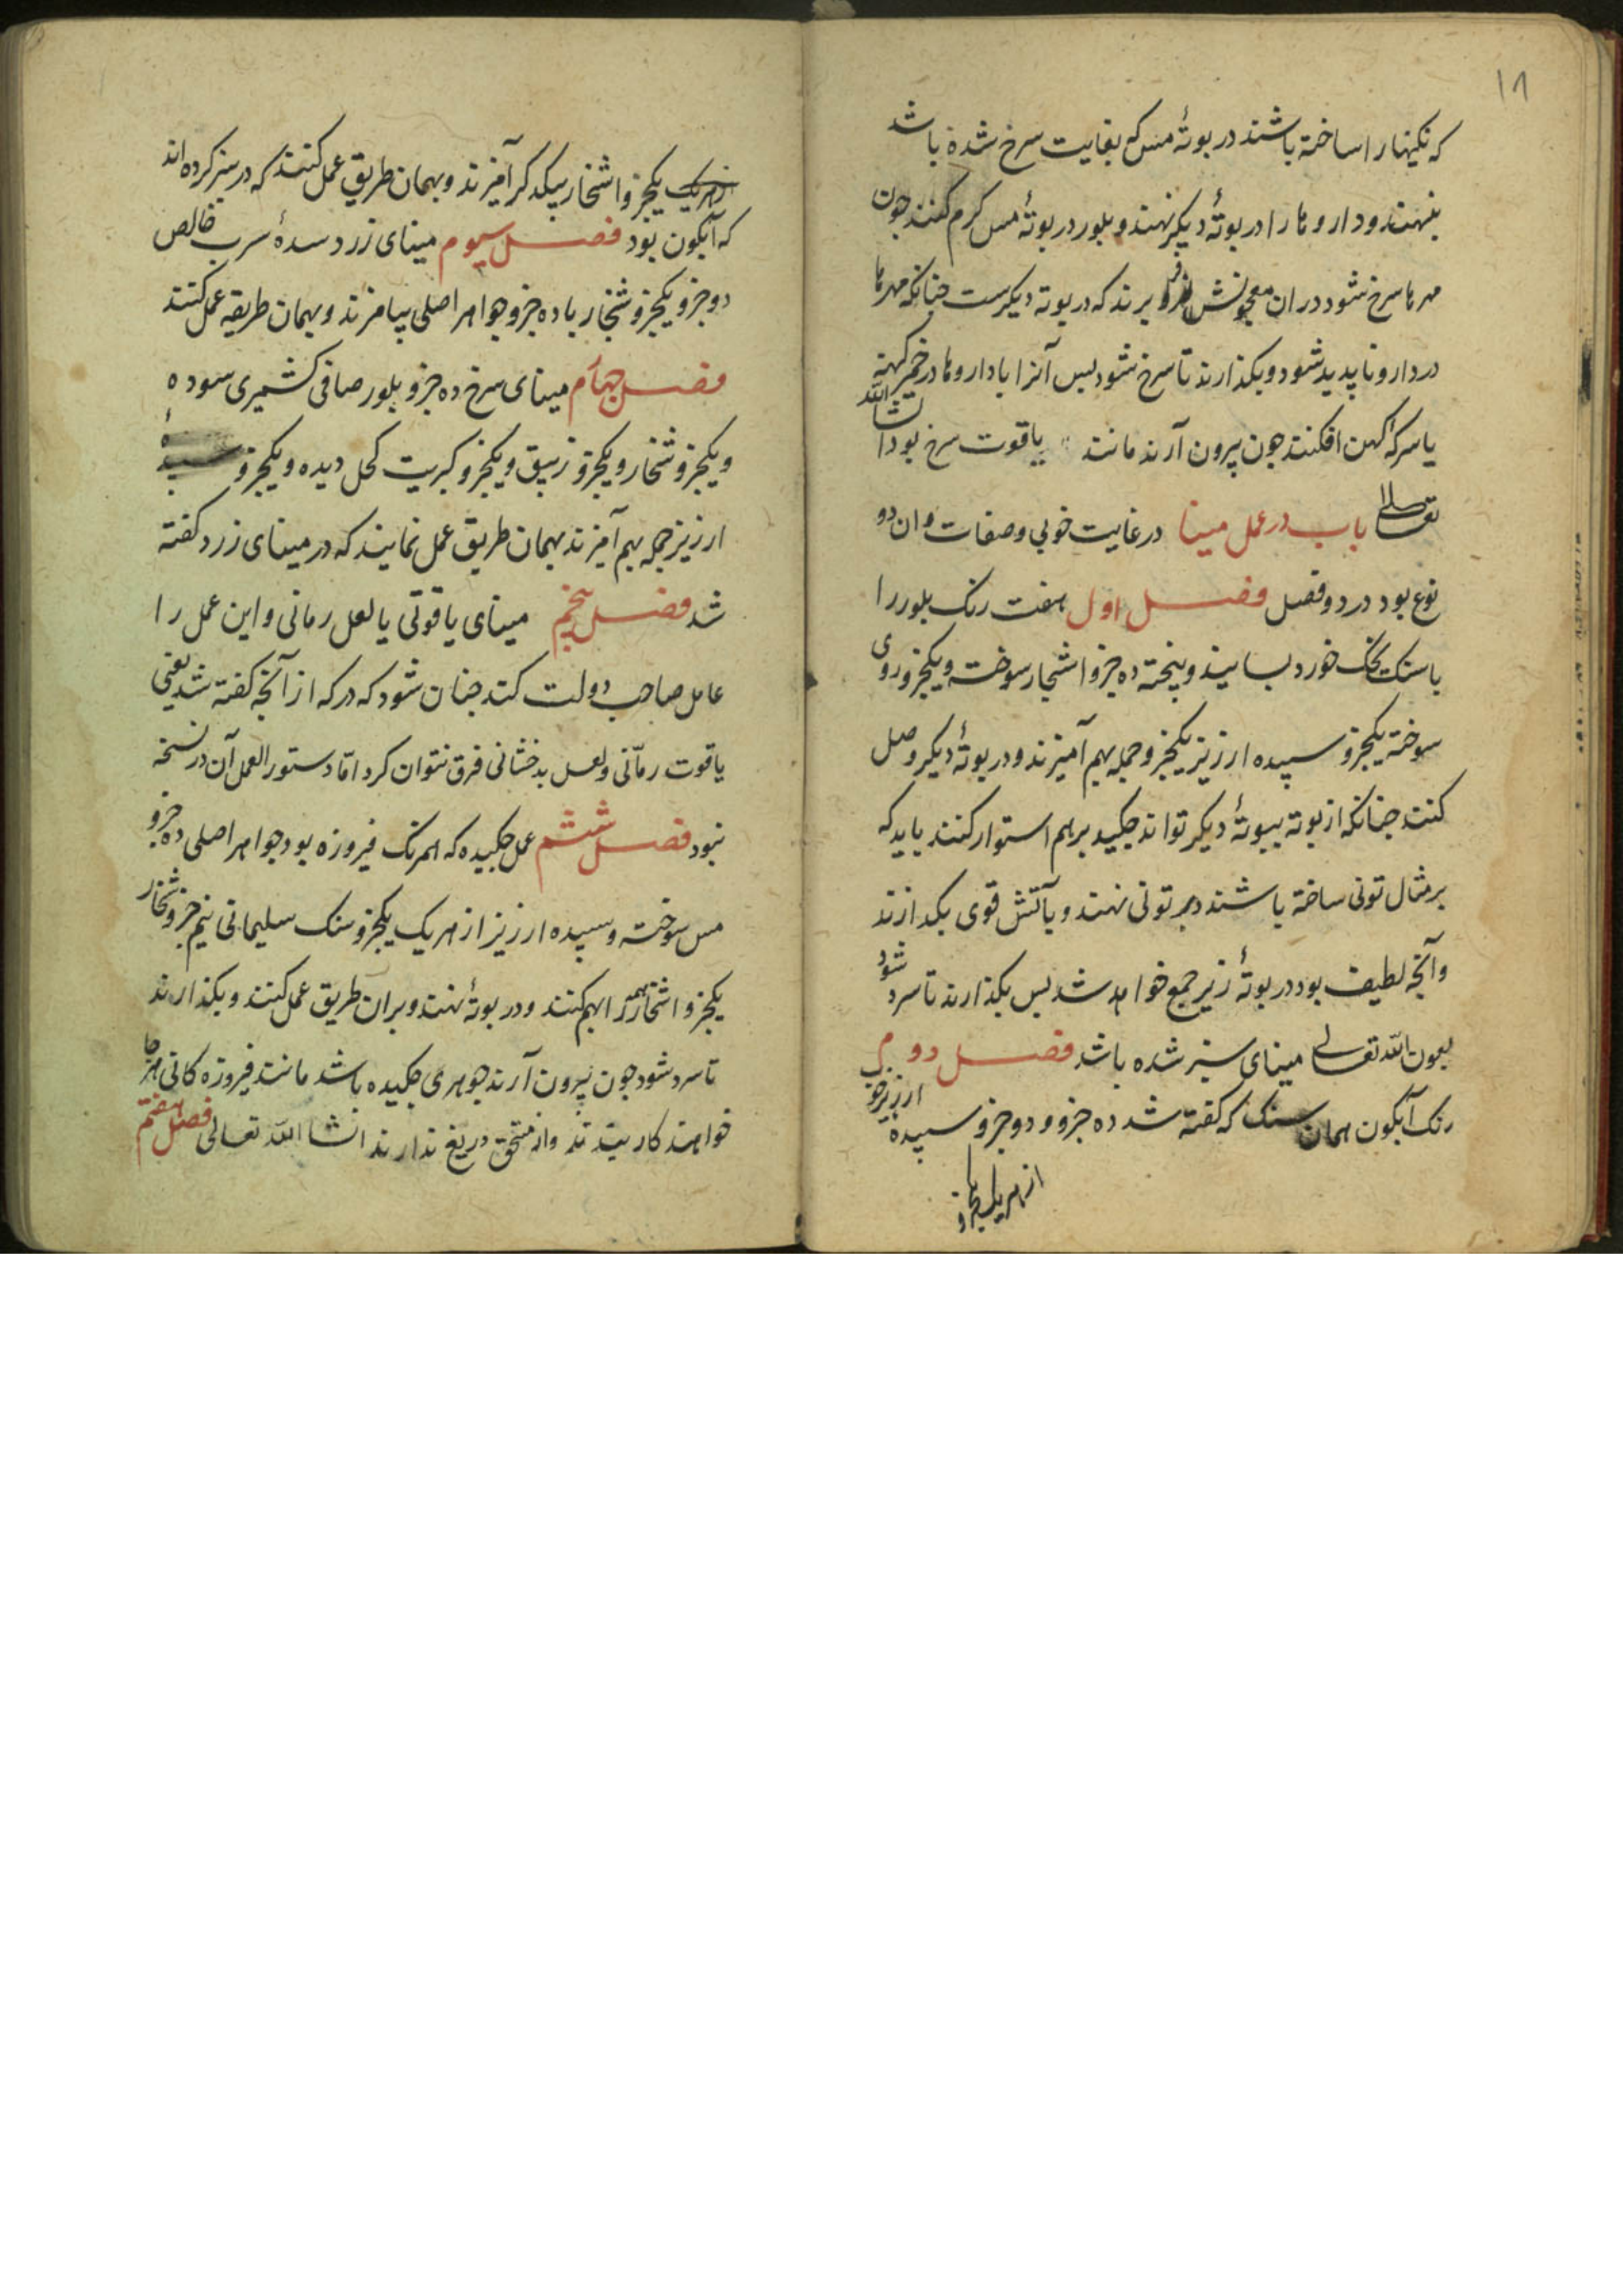 ۱۸
که نکینها را ساخته باشند در بوتهٔ مس که بغایت سرخ شده باشد
بنهند و داروها را در بوتهٔ دیکر نهند و بلور در بوتهٔ مس کرم کنند جون
مهرها سرخ شود در ان معجونش فرو برند که در بوته دیکرست جنانکه مهرها
در دارو ناپدید شود و بکذارند تا سرخ شود پس آنرا با داروها در خمر کهنه
یا سرکهٔ کهن افکنند جون بیرون آرند مانند یاقوت سرخ بود انشا الله
تعالی باب در عمل مینا در غایت خوبی و صفات و ان دو
نوع بود در دو فصل فصل اول هفت رنک بلور را
با سنک خورد بسایند و بیخته ده جزو اشجار سوخته و یکجزو روی
سوخته یکجزو سپیده ارزیز یکجزو جمله بهم آمیزند و در بوتهٔ دیکر وصل
کنند جنانکه از بوته ببوتهٔ دیکر تواند جکید بر هم استوار کنند باید که
بر مثال تونی ساخته باشند در تونی نهند و بآتش قوی بکدازند
و آنجه لطیف بود در بوتهٔ زیر جمع خواهد شد پس بکذارند تا سرد شود
بعون الله تعالی مینای سبز شده باشد فصل دوم
رنک آبکون همان سنک که کفته شد ده جزو و دو جزو سپیده ارزیز جزو
از هریک یکجزو
از هریک یکجزو و اشخار بیکدکر آمیزند و بهمان طریق عمل کنند که در سبز کرده اند
که آبکون بود فصل سیوم مینای زرد سدهٔ سرب خالص
دو جزو یکجزو شخار با ده جزو جواهر اصلی بیامیزند و بهمان طریقه عمل کنند
فصل جهارم مینای سرخ ده جزو بلور صافی کشمیری سوده
و یکجزو شخار و یکجزو زیبق و یکجزو کبریت کحل دیده و یکجزو سپیدهٔ
ارزیز جمله بهم آمیزند بهمان طریق عمل نمایند که در مینای زرد کفته
شد فصل پنجم مینای یاقوتی یا لعل رمانی و این عمل را
عامل صاحب دولت کند جنان شود که هرکه از آنجه کفته شد یعنی
یاقوت رمّانی و لعل بدخشانی فرق نتوان کرد امّا دستور العمل آن در نسخه
نبود فصل ششم عمل جکیده که همرنک فیروزه بود جواهر اصلی ده جزو
مس سوخته و سپیده ارزیز از هریک یکجزو سنک سلیمانی نیم جزو شخار
یکجزو اشخار همه را بهم کنند و در بوتهٔ نهند و بران طریق عمل کنند و بکذارند
تا سرد شود جون بیرون آرند جوهری جکیده باشد مانند فیروزه کانی هر جا
خواهند کار بندند و از مستحق دریغ ندارند انشا الله تعالی فصل هفتم